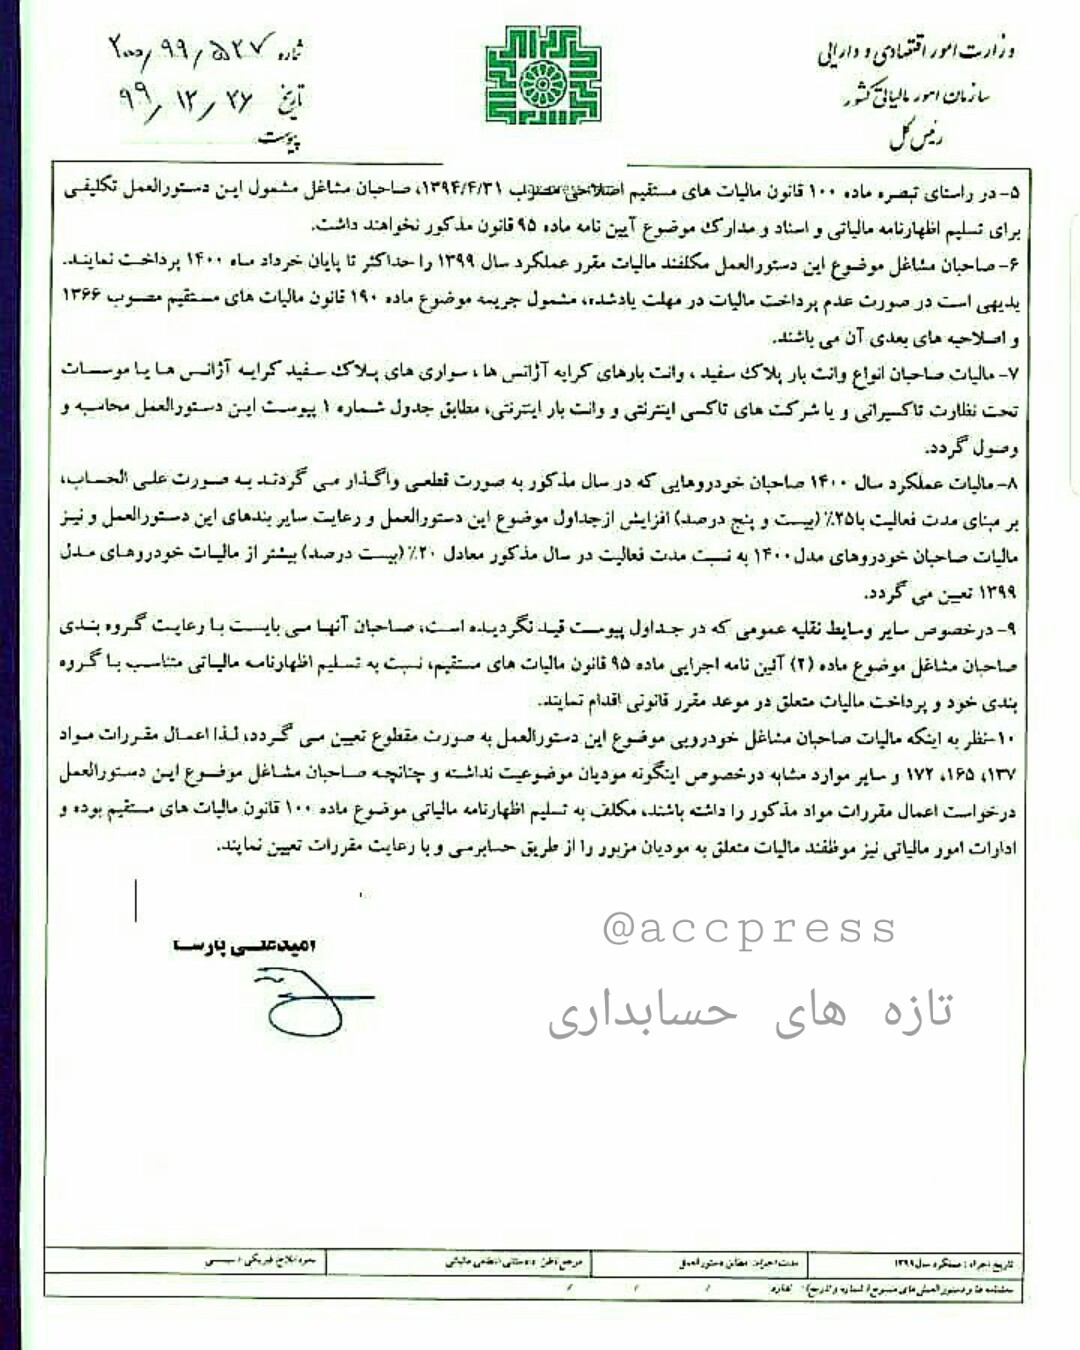 وزارت امور اقتصادی و دارایی
سازمان امور مالیاتی کشور
رئیس کل
شماره ۲۰۰/۹۹/۵۲۷
تاریخ ۹۹/۱۲/۲۶
پیوست
۵- در راستای تبصره ماده ۱۰۰ قانون مالیات های مستقیم اصلاحی مصوب ۱۳۹۴/۴/۳۱، صاحبان مشاغل مشمول این دستورالعمل تکلیفی
برای تسلیم اظهارنامه مالیاتی و اسناد و مدارک موضوع آیین نامه ماده ۹۵ قانون مذکور نخواهند داشت.
۶- صاحبان مشاغل موضوع این دستورالعمل مکلفند مالیات مقرر عملکرد سال ۱۳۹۹ را حداکثر تا پایان خرداد ماه ۱۴۰۰ پرداخت نمایند.
بدیهی است در صورت عدم پرداخت مالیات در مهلت یادشده، مشمول جریمه موضوع ماده ۱۹۰ قانون مالیات های مستقیم مصوب ۱۳۶۶
و اصلاحیه های بعدی آن می باشند.
۷- مالیات صاحبان انواع وانت بار پلاک سفید ، وانت بارهای کرایه آژانس ها ، سواری های پلاک سفید کرایه آژانس ها یا موسسات
تحت نظارت تاکسیرانی و یا شرکت های تاکسی اینترنتی و وانت بار اینترنتی، مطابق جدول شماره ۱ پیوست این دستورالعمل محاسبه و
وصول گردد.
۸- مالیات عملکرد سال ۱۴۰۰ صاحبان خودروهایی که در سال مذکور به صورت قطعی واگذار می گردند به صورت علی الحساب،
بر مبنای مدت فعالیت با ۲۵٪ (بیست و پنج درصد) افزایش از جداول موضوع این دستورالعمل و رعایت سایر بندهای این دستورالعمل و نیز
مالیات صاحبان خودروهای مدل ۱۴۰۰ به نسبت مدت فعالیت در سال مذکور معادل ۲۰٪ (بیست درصد) بیشتر از مالیات خودروهای مدل
۱۳۹۹ تعیین می گردد.
۹- درخصوص سایر وسایط نقلیه عمومی که در جداول پیوست قید نگردیده است، صاحبان آنها می بایست با رعایت گروه بندی
صاحبان مشاغل موضوع ماده (۲) آئین نامه اجرایی ماده ۹۵ قانون مالیات های مستقیم، نسبت به تسلیم اظهارنامه مالیاتی متناسب با گروه
بندی خود و پرداخت مالیات متعلق در موعد مقرر قانونی اقدام نمایند.
۱۰- نظر به اینکه مالیات صاحبان مشاغل خودرویی موضوع این دستورالعمل به صورت مقطوع تعیین می گردد، لذا اعمال مقررات مواد
۱۳۷، ۱۶۵، ۱۷۲ و سایر موارد مشابه درخصوص اینگونه مودیان موضوعیت نداشته و چنانچه صاحبان مشاغل موضوع این دستورالعمل
درخواست اعمال مقررات مواد مذکور را داشته باشند، مکلف به تسلیم اظهارنامه مالیاتی موضوع ماده ۱۰۰ قانون مالیات های مستقیم بوده و
ادارات امور مالیاتی نیز موظفند مالیات متعلق به مودیان مزبور را از طریق حسابرسی و با رعایت مقررات تعیین نمایند.
امیدعلی پارسا
@accpress
تازه های حسابداری
تاریخ اجراء : عملکرد سال ۱۳۹۹
مدت اجراء: مطابق دستورالعمل
مرجع ناظر: دادستانی انتظامی مالیاتی
نحوه ابلاغ: فیزیکی / سیستمی
بخشنامه ها و دستورالعمل های منسوخ (شماره و تاریخ): ندارد / / /